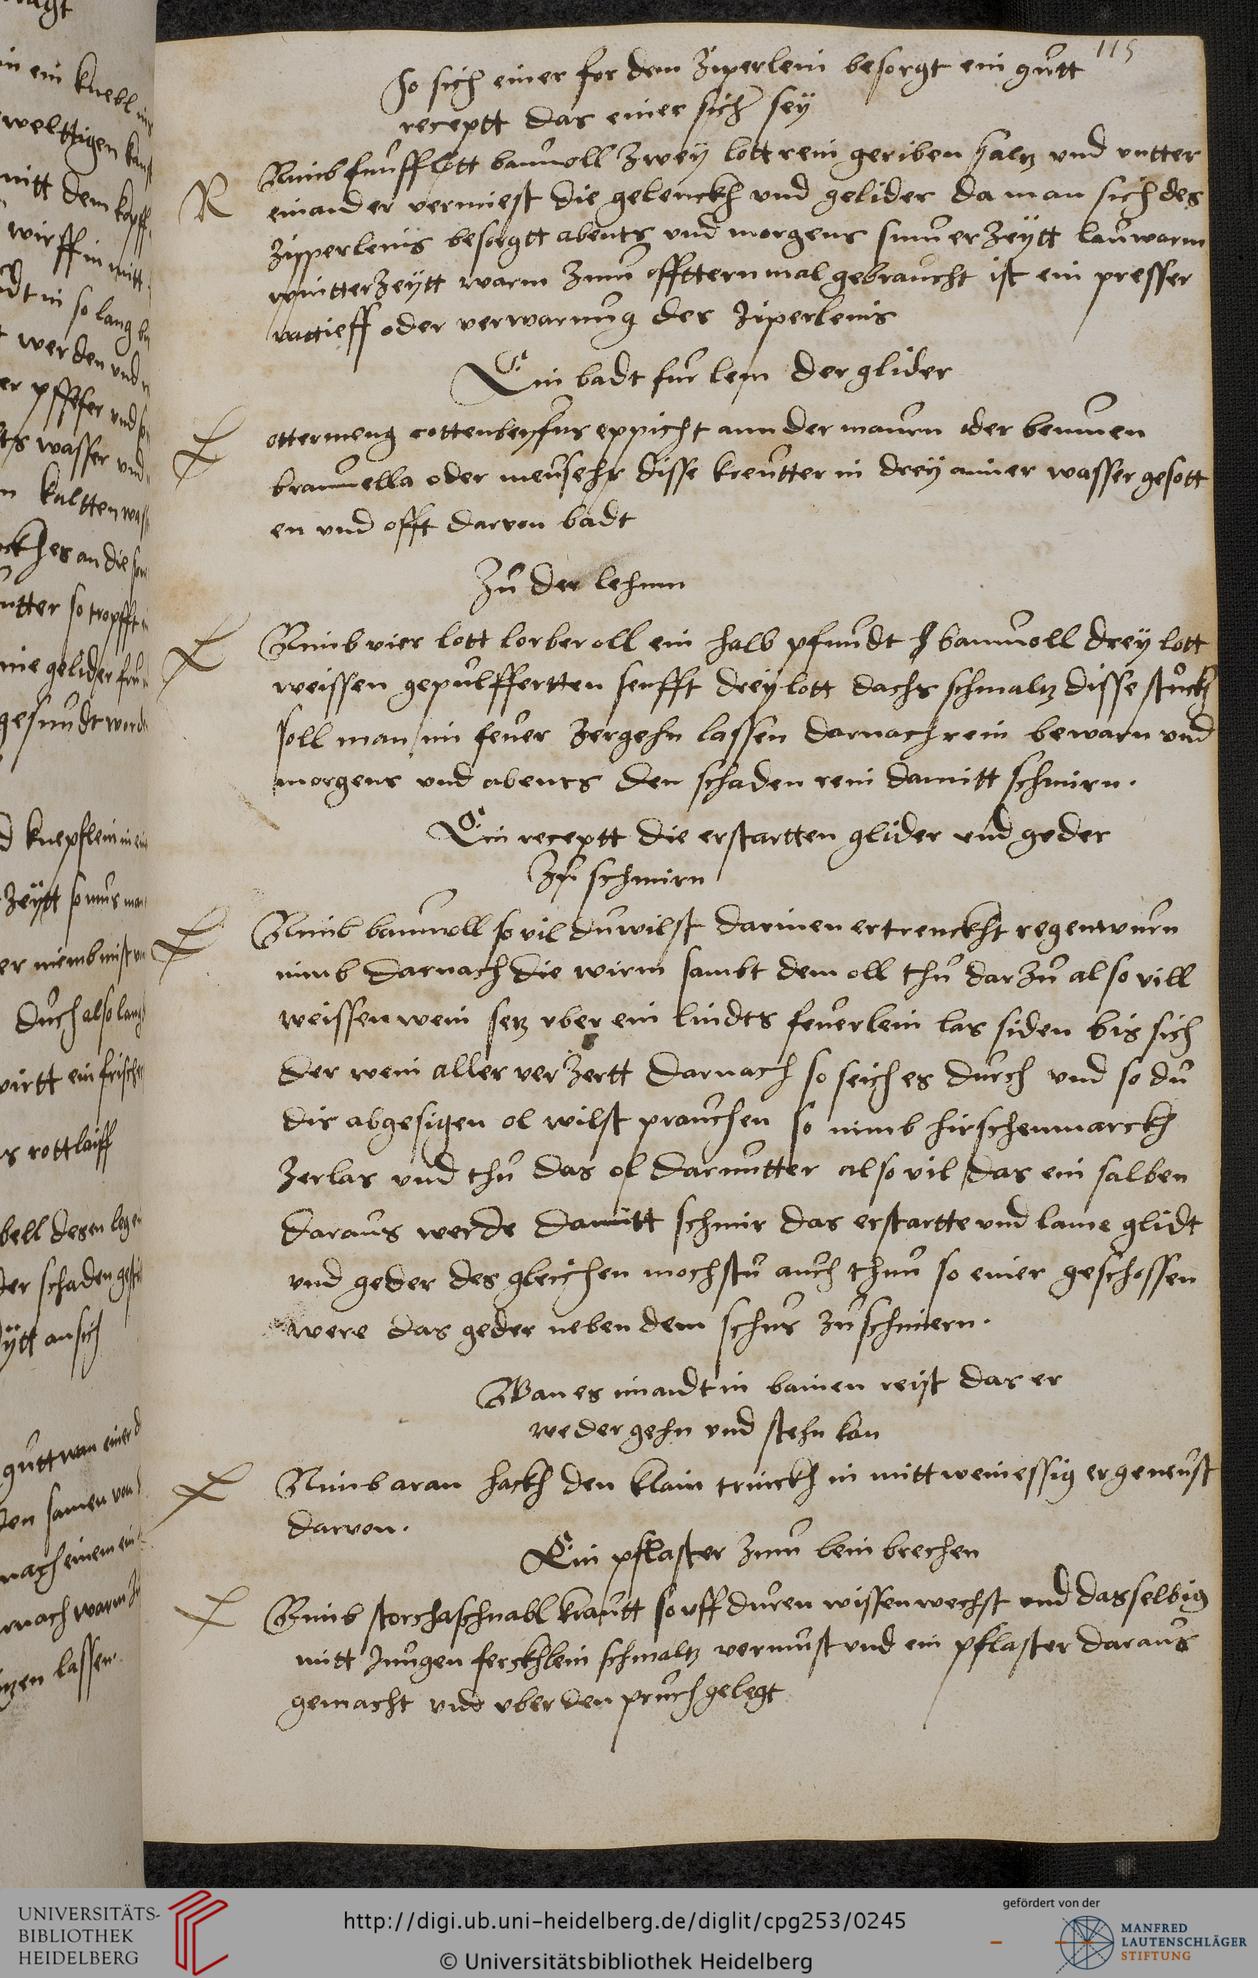 115
so sich einer for dem Ziperlein besorgt ein gutt
receptt das einer sicher sey
R
Nimb funff lott baumoll Zwey lott rein geriben saltz und untter
einander vermiest die gelenckh und gelider da man sich des
Zipperleins besorgtt abents und morgens sumerzeytt lauwarm
wintterzeytt warm Zum offtternmal gebraucht ist ein presser
vattieff oder verwarnug des Ziperleins
Ein badt fur lem der glider
ottermeng rottenbeyfus eppicht ann der maurn oder
braunella oder meusehr disse kreutter in drey aimer wasser gesott
en und offt darvon badt
Zu der lehmn
Nimb vier lott lorberoll ein halb pfundt baumoll drey lott
weissen gepulffertten senfft drey lott dachs schmaltz disse stuckh
soll man im feuer Zergehn lassen darnach rein bewarn und
morgens und abents den schaden rein damitt schmirn.
Ein receptt die erstartten glider und geder
Zu schmirn
Nimb baumoll so vil du wilst darinen ertrenckht regenwurn
nimb darnach die wirm sambt dem oll thu darzu also vill
weissen wein setz uber ein lindts feuerlein las siden bis sich
der wein aller verzertt darnach so seich es durch und so du
dis abgesigen ol wilst prauchen so nimb hirschenmarckh
Zerlas und thu das ol darnutter also vil das ein salben
daraus werde damitt schmir das erstartte und lame glidt
und geder des gleichen mochstu auch thun so einer geschossen
were das geder neben dem schus Zu schmiern.
Wan es imandt in bainen reist das er
weder gehn und stehn kan
Nimb aran hackh den klain trinckh in mitt weinessig er geneust
darvon.
Ein pflaster Zum bein brechen
Nimb storchaschnabl krautt so uff duren wissen wechst und dasselbig
mitt Jungen ferckhlein schmaltz vermust und ein pflaster daraus
gemacht und uber den pruch gelegt
UNIVERSITÄTS-
BIBLIOTHEK
HEIDELBERG
http://digi.ub.uni-heidelberg.de/diglit/cpg253/0245
© Universitätsbibliothek Heidelberg
gefördert von der
MANFRED
LAUTENSCHLÄGER
STIFTUNG